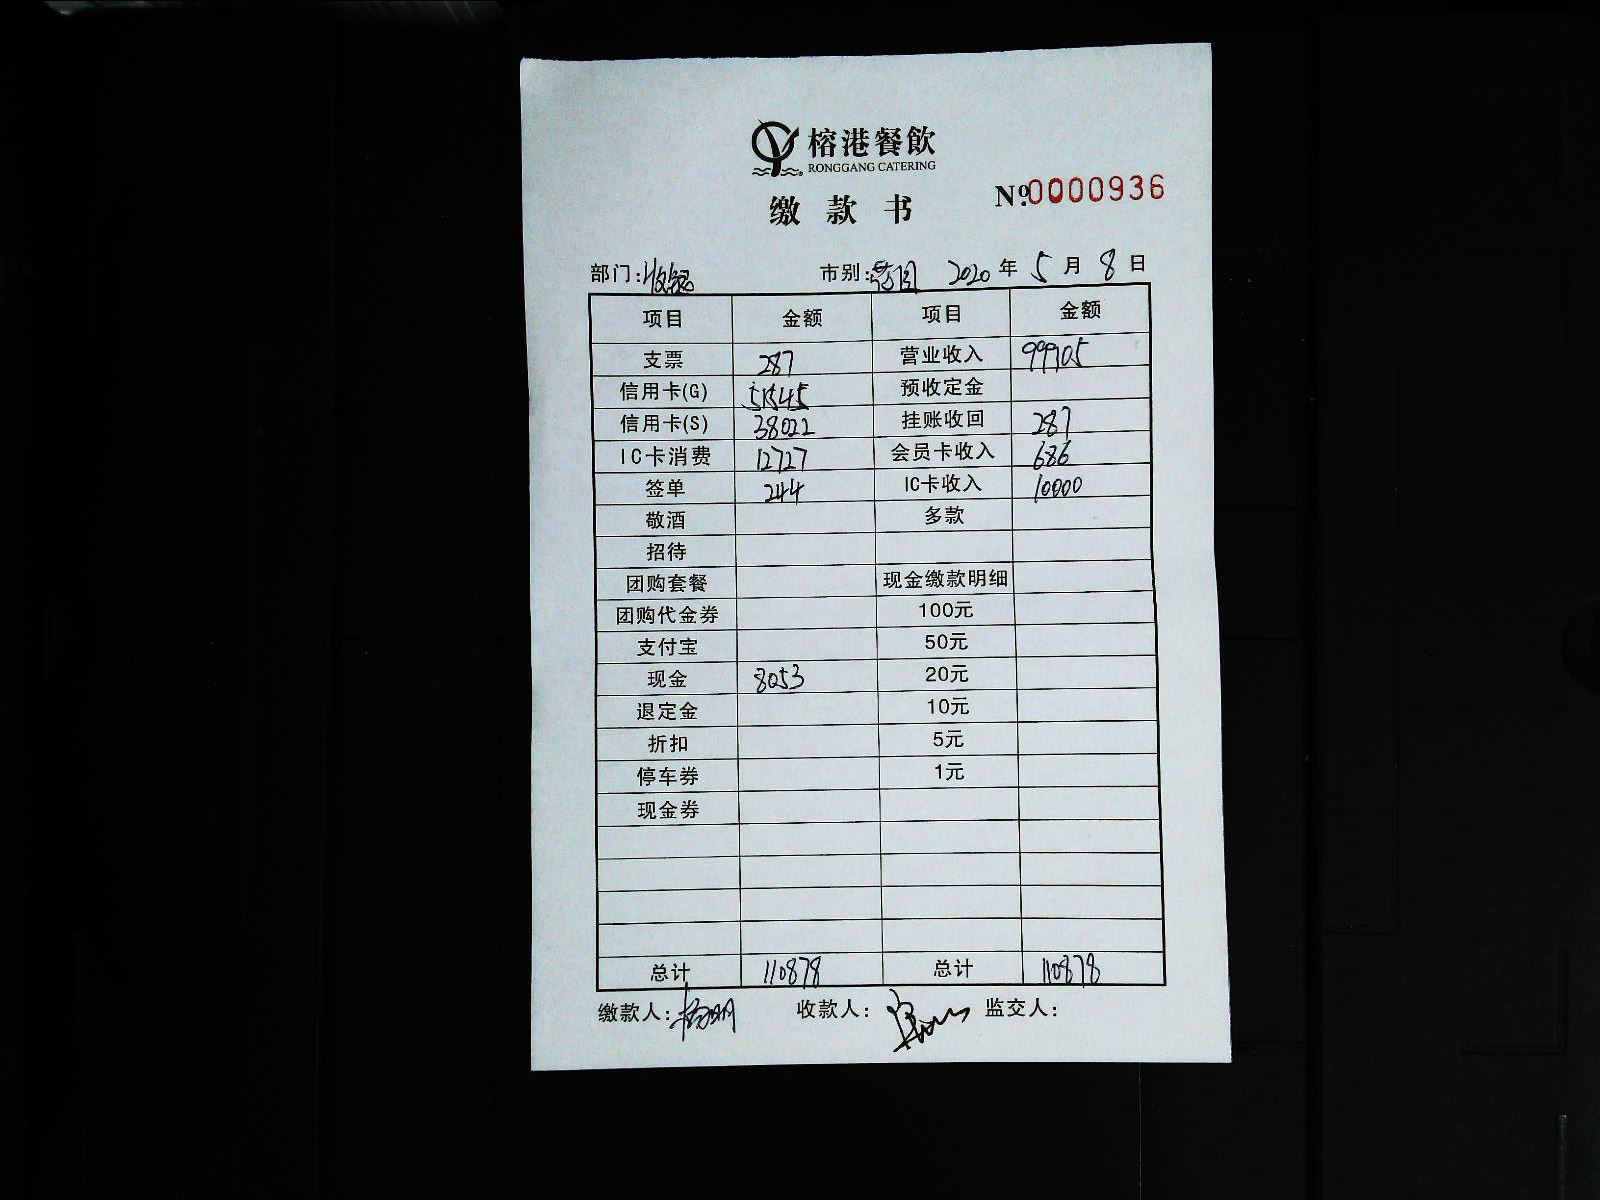 榕港餐飲
RONGGANG CATERING
缴款书
Nº.0000936
部门:收银 市别: 2020年5月8日
项目 金额 项目 金额
支票 287 营业收入 99905
信用卡(G) 51545 预收定金
信用卡(S) 38022 挂账收回 287
IC卡消费 12727 会员卡收入 686
签单 244 IC卡收入 10000
敬酒 多款
招待
团购套餐 现金缴款明细
团购代金券 100元
支付宝 50元
现金 8053 20元
退定金 10元
折扣 5元
停车券 1元
现金券
总计 110878 总计 110878
缴款人: 收款人: 监交人: